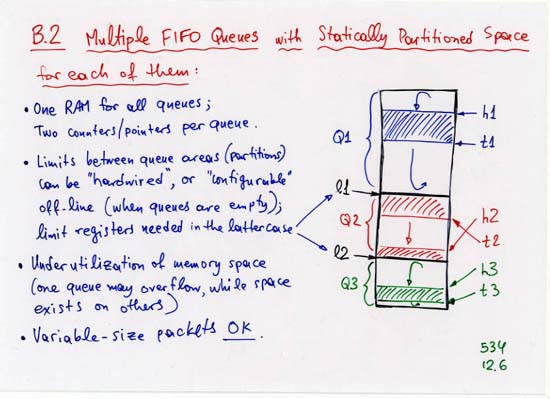 B.2 Multiple FIFO Queues with Statically Partitioned Space
for each of them:
• One RAM for all queues;
Two counters/pointers per queue.
• Limits between queue areas (partitions)
can be "hardwired", or "configurable"
off-line (when queues are empty);
limit registers needed in the latter case
• Underutilization of memory space
(one queue may overflow, while space
exists on others)
• Variable-size packets OK.
Q1
h1
t1
l1
Q2
h2
t2
l2
Q3
h3
t3
534
12.6